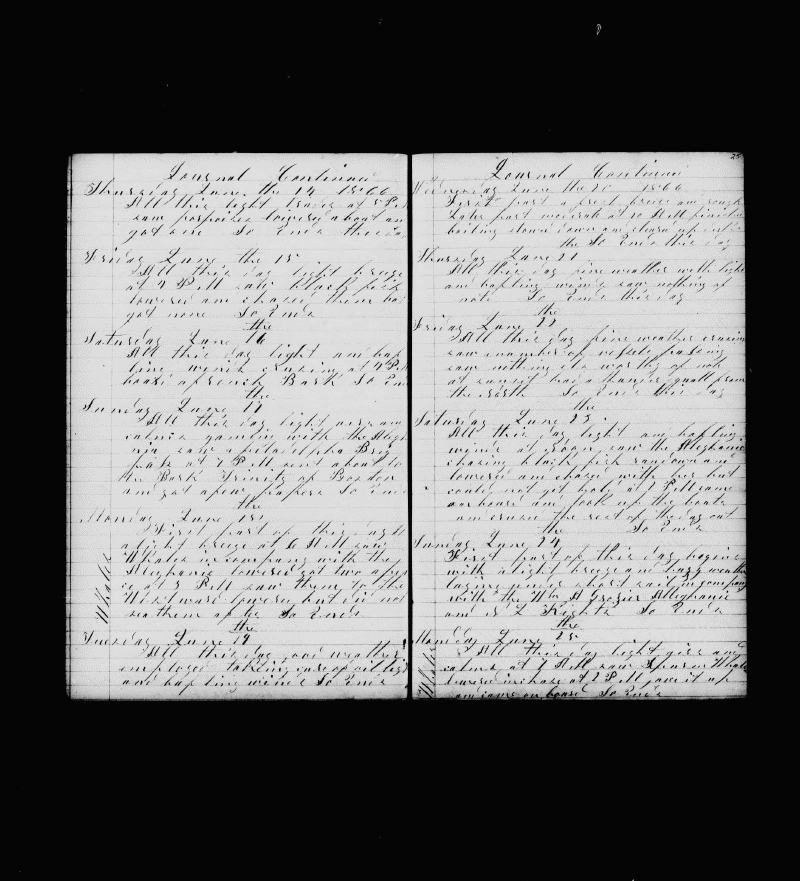 Journal Continued
Thursday June the 14 1866
All this light breeze at 5 P.M
saw porpoises lowered a boat an
got none So Ends this day
Friday June the 15
All this day light breeze
at 4 P M saw black fish
lowered an chased them but
got none So Ends
Saturday June the 16
All this day light an baf
ling winds cruzing at 4 P M
board a french Bark So End
Sunday June the 17
All this day light airs an
calms gamin with the Allegh
nia saw a philadelpha Brig
pass at 7 P M sent a boat to
the Bark Trinity of
an got a few papers So Ends
Monday June the 18
First part of this day
a light breeze at 6 A M saw
Whales in company with the
Alleghanie lowered got two
at 5 P M saw them to the
Westward lowered but did not
see them So Ends
Whales
Tuesday June the 19
All this day good weather
employed taking care of oil light
and baf ling winds So Ends
25
Journal Continued
Wednesday June the 20 1866
First part a fresh breeze an rough
Later part moderate at 10 A M finished
boiling stowed down an cleared up
So Ends this day
Thursday June the 21
All this day fine weather with light
an baf ling winds saw nothing of
note So Ends this day
Friday June the 22
All this day fine weather cruzing
saw a number of vessels passing
saw nothing els worthy of note
at sunset had a squall from
the North So Ends this day
Saturday June the 23
All this day light an baf ling
winds at Noon saw the Alleghanie
chasing black fish ran down an
lowered an chased with her but
could not get hold at 7 P M came
on board an took up the boats
an cruzed the rest of the day out
So Ends
Sunday June the 24
First part of this day begins
with a light breeze an hazy weather
laying under short sail in company
with the Wm A Grozier Alleghanie
an So Ends
Monday June the 25
All this day light airs and
calms at 7 A M saw Sperm Whales
lowered in chase at 2 P M gave it up
an came on board So Ends
Whales